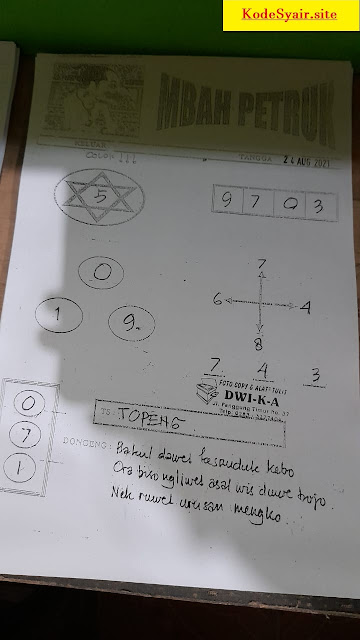 KodeSyair.site
MBAH PETRUK
COLOK ↓↓↓
TANGGA 24 AUG 2021
5
9 7 0 3
0
1 9.
7
6 4
8
7 4 3
FOTO COPY & ALAT TULIS
DWI-K-A
Jl. Panggung Timur No. 37
TS: TOPENG
0
7
1
DONGENG: Bakul dawet kesanduk kebo
Ora biso ngliwet asal wis duwe bojo.
Nek ruwet urusan mengko...